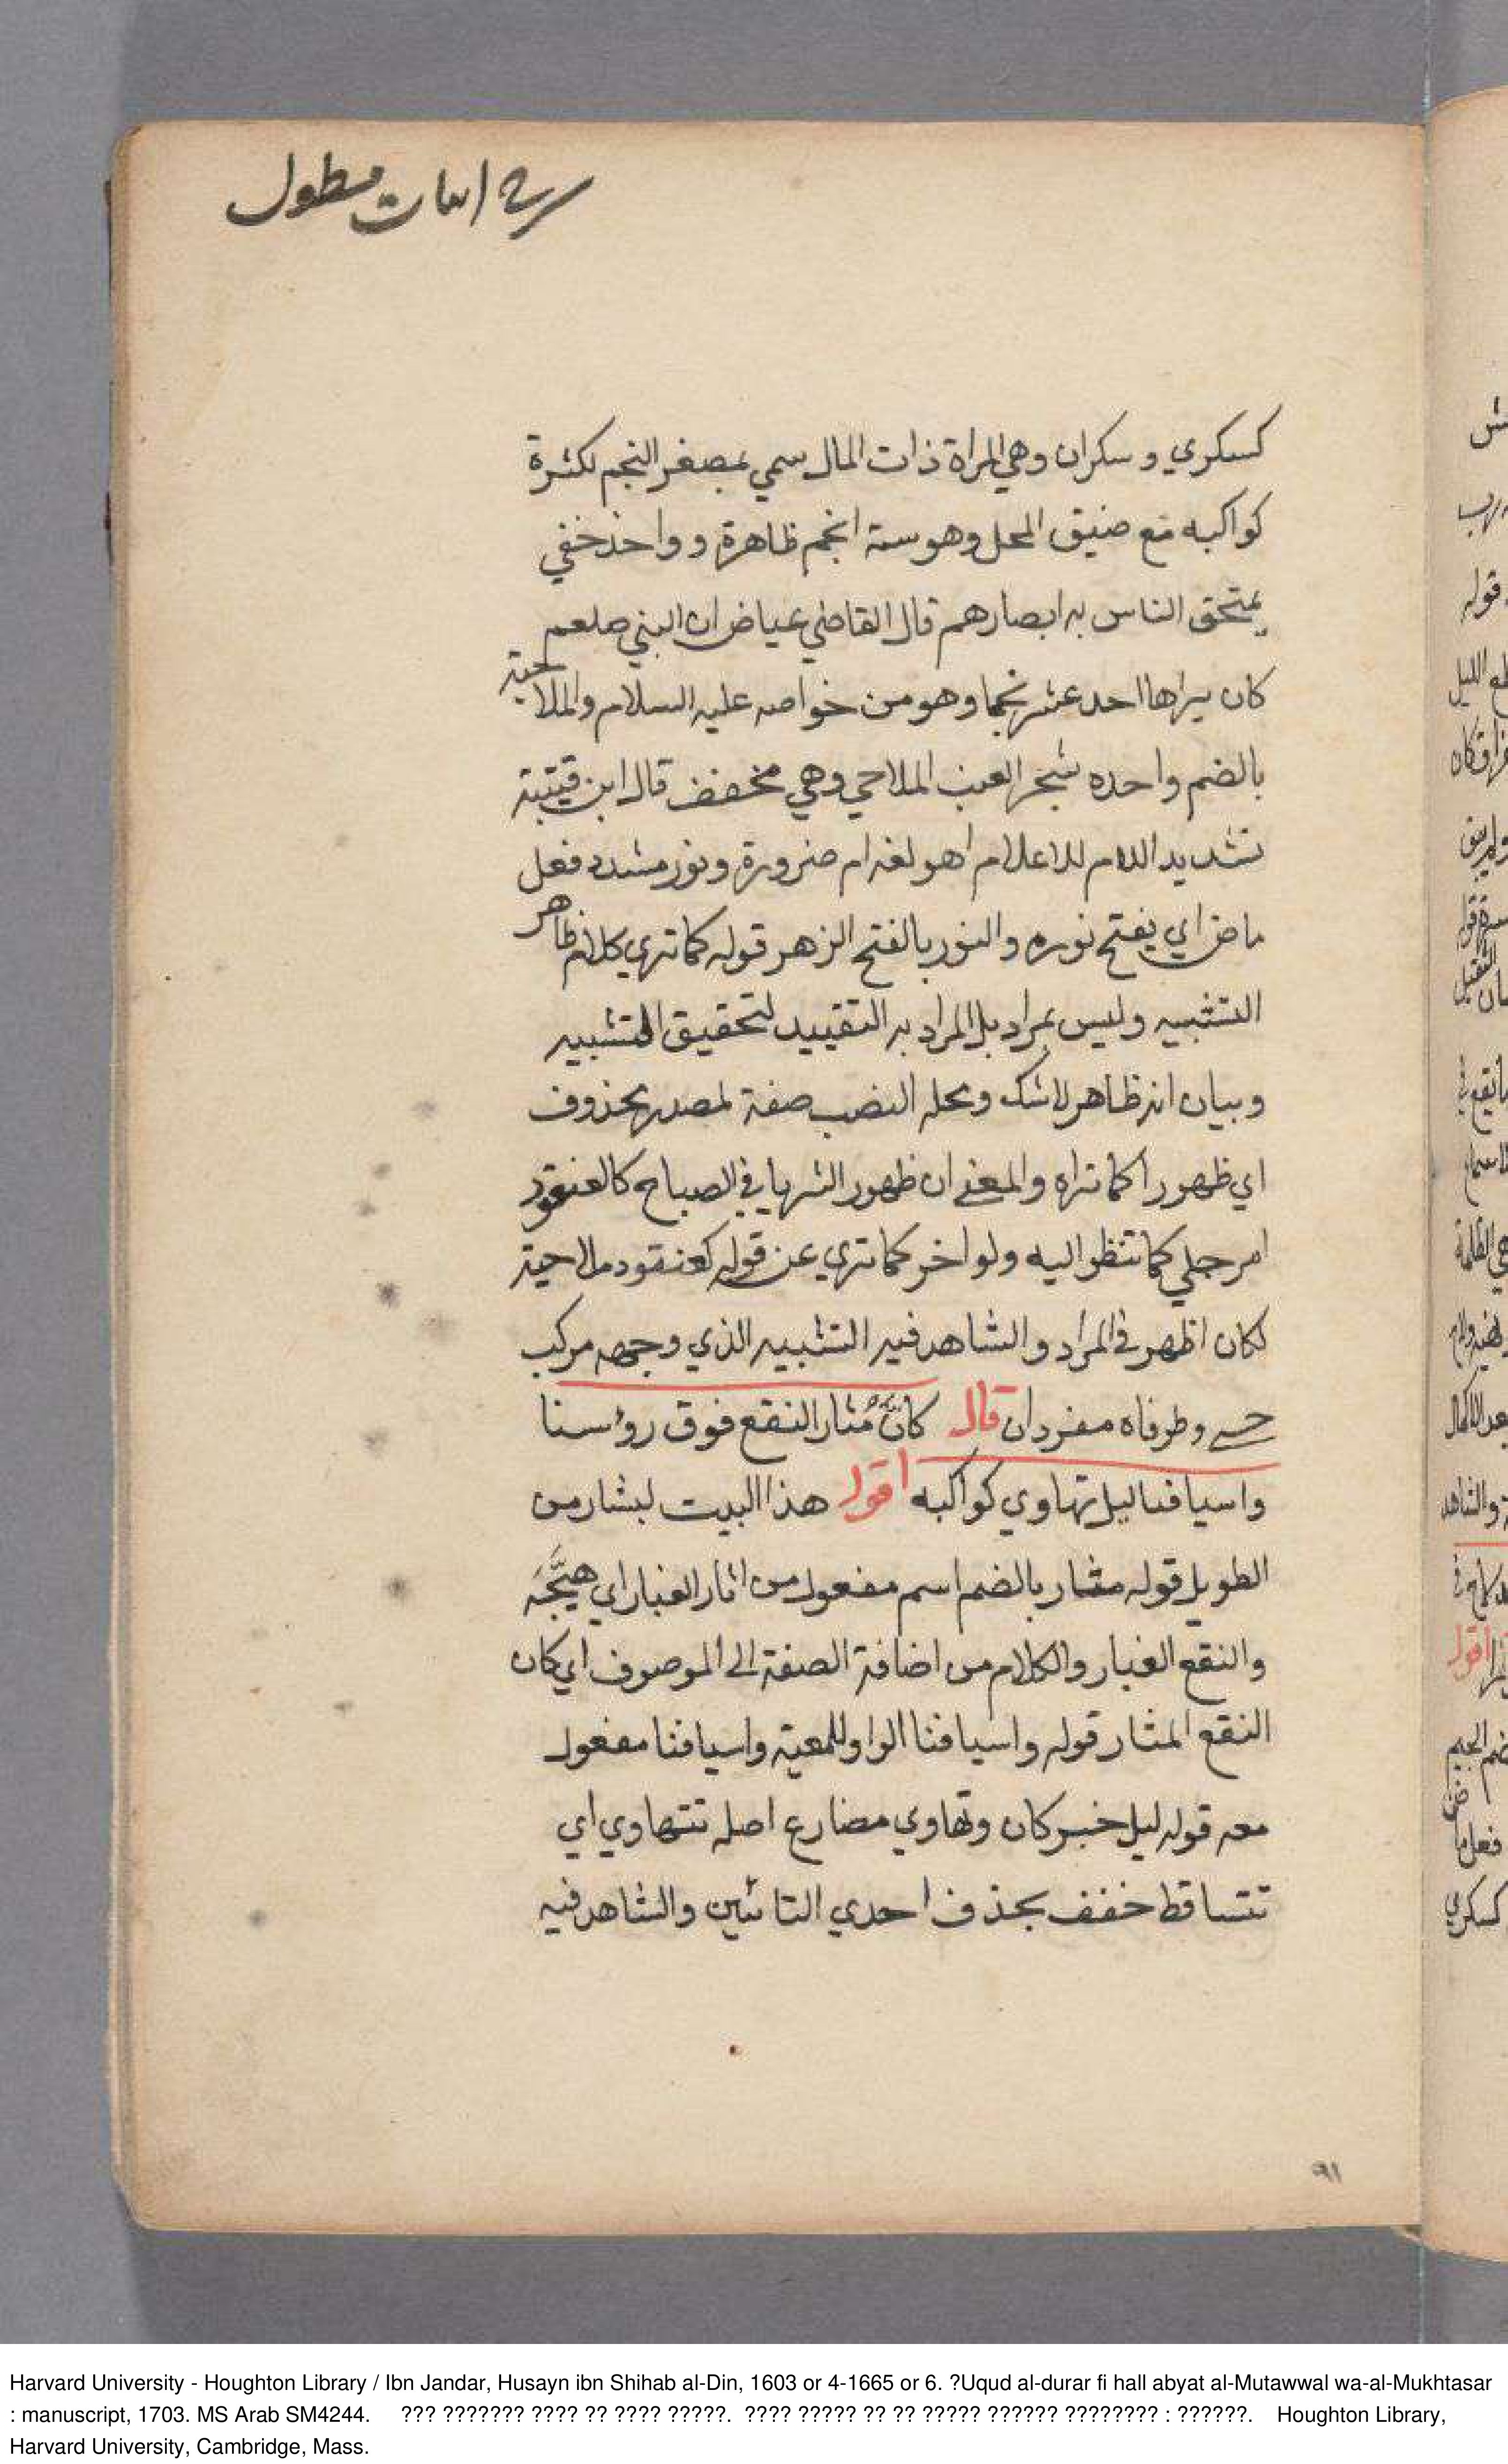 شرح ابيات مطول
كسكري وسكران وهي المراة ذات المال سمي بمصغر النجم لكثرة
كواكبه مع ضيق المحل وهو ستة انجم ظاهرة وواحد خفي
يمتحن الناس به ابصارهم قال القاضي عياض ان النبي صلعم
كان يراها احد عشر نجما وهو من خواصه عليه السلام والملاحية
بالضم واحده شجر العنب الملاحي وهي مخفف قال ابن قتيبة
تشديد اللام للاعلام اهو لغة ام ضرورة ونور مشدد فعل
ماض اي يفتح نوره والنور بالفتح الزهر قوله كما تري كلام ظاهر
التشبيه وليس بمراد بل المراد به التقييد لتحقيق التشبيه
وبيان انه ظاهر لا شك ومحله النصب صفة لمصدر محذوف
اي ظهورا كما تراه والمعنى ان ظهور الثريا في الصباح كالعنقود
امر جلي كما تنظر اليه ولو اخر كما تري عن قوله كعنقود ملاحية
لكان اظهر في المراد والشاهد فيه التشبيه الذي وجهه مركب
حسي وطرفاه مفردان قال كان مُثار النقع فوق رؤسنا
واسيافنا ليل تهاوي كواكبه اقول هذا البيت لبشار من
الطويل قوله مثار بالضم اسم مفعول من اثار الغبار اي هيَّجَه
والنقع الغبار والكلام من اضافة الصفة الى الموصوف اي كان
النقع المثار قوله واسيافنا الواو للمعية واسيافنا مفعول
معه قوله ليل خبر كان وتهاوي مضارع اصله تتهاوي اي
تتساقط خفف بحذف احدي التائين والشاهد فيه
٩١
Harvard University - Houghton Library / Ibn Jandar, Husayn ibn Shihab al-Din, 1603 or 4-1665 or 6. ?Uqud al-durar fi hall abyat al-Mutawwal wa-al-Mukhtasar
: manuscript, 1703. MS Arab SM4244. ??? ??????? ???? ?? ???? ?????. ???? ????? ?? ?? ????? ?????? ???????? : ??????. Houghton Library,
Harvard University, Cambridge, Mass.